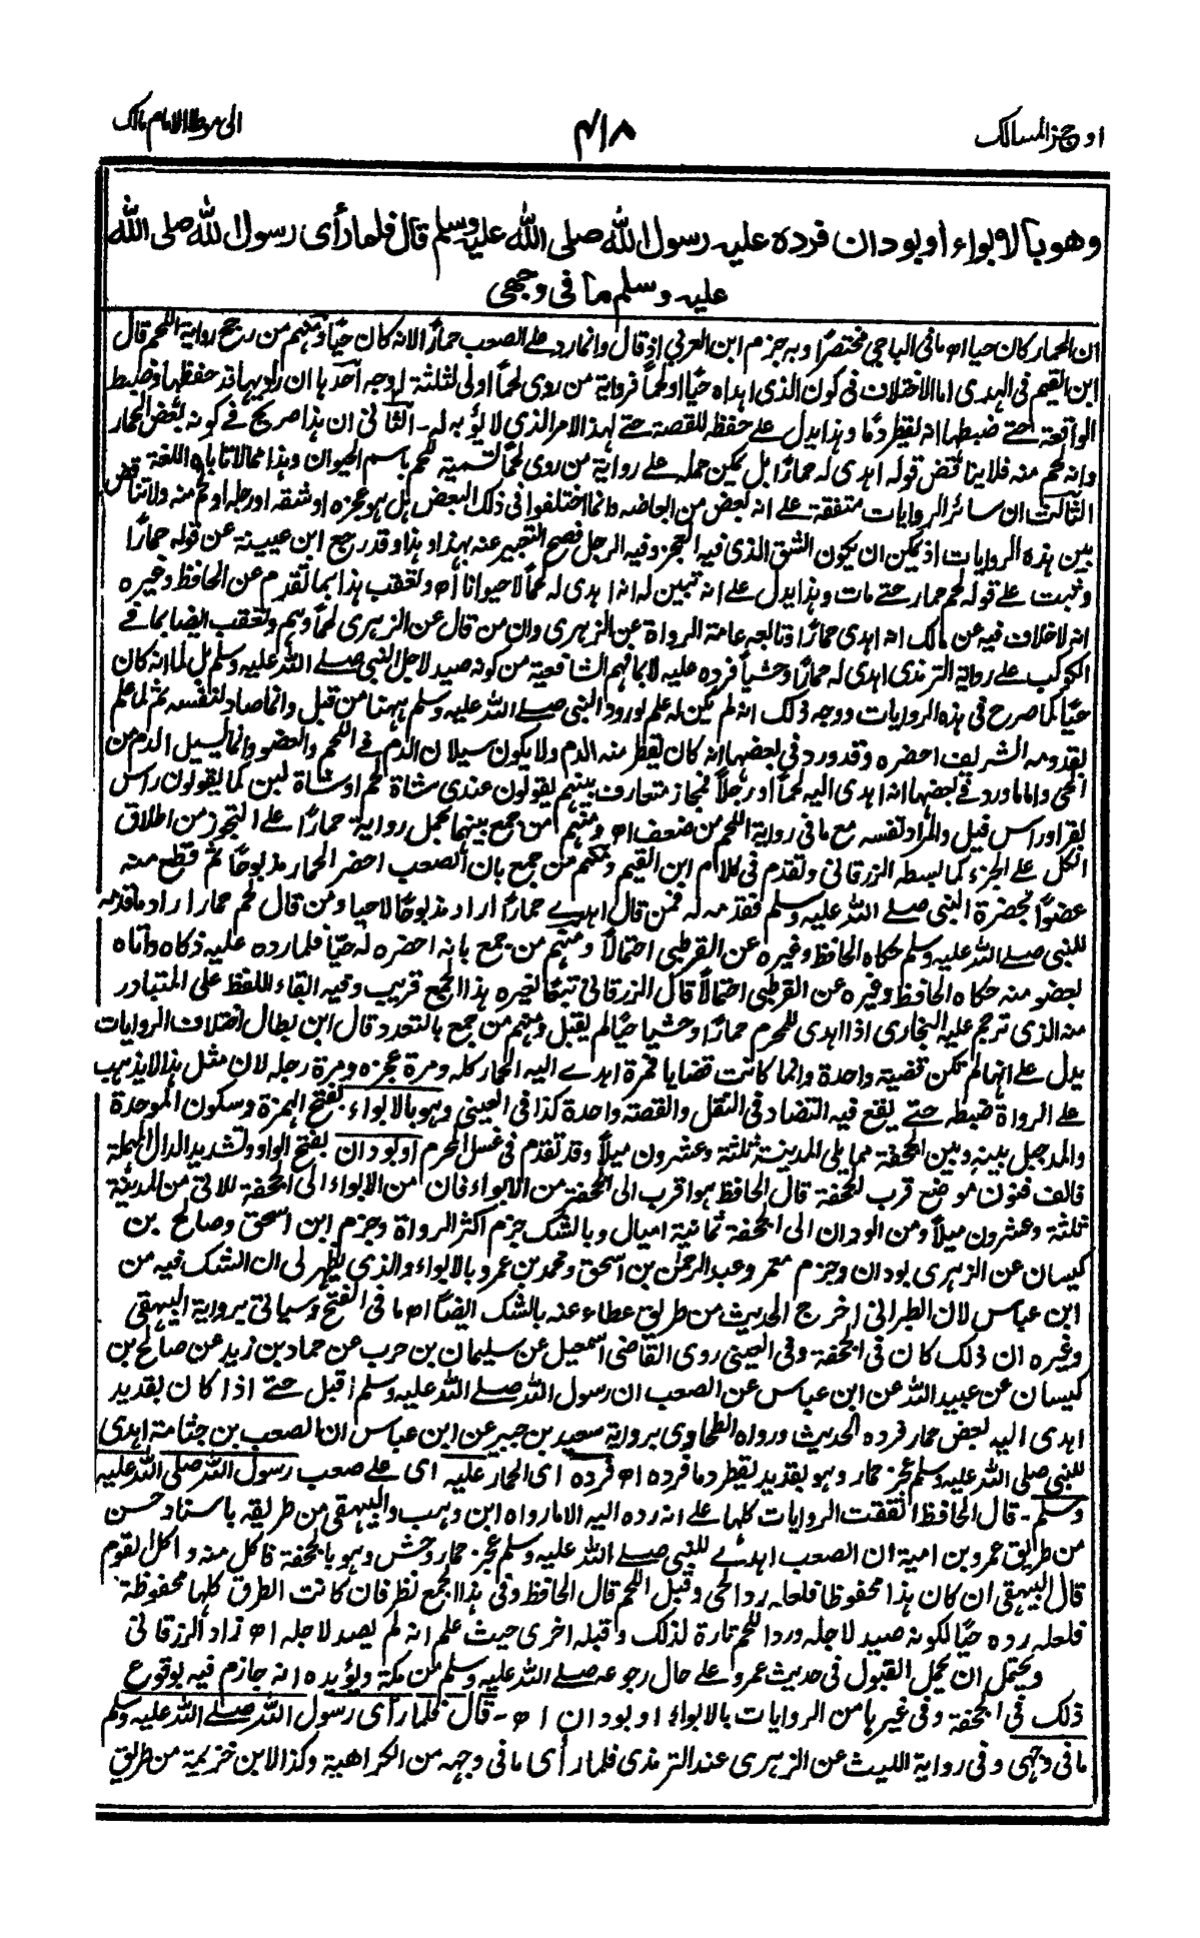 اوجز المسالك
٤١٨
الى موطا الامام مالك
وهو بالابواء او بودان فرده عليه رسول الله صلى الله عليه وسلم قال فلما رأى رسول الله صلى الله
عليه وسلم ما فى وجهى
ان الحمار كان حيا اه ما فى الباجى مختصرًا وبه جزم ابن العربى اذ قال وانما رد على الصعب حمارًا لانه كان حيًا ومنهم من رجح رواية اللحم قال
ابن القيم فى الهدى اما الاختلاف فى كون الذى اهداه حيًا او لحمًا فرواية من روى لحمًا اولى لثلثة اوجه احدها ان راويها قد حفظها وضبط
الواقعة حتى ضبطها انه يقطر دمًا وهذا يدل على حفظه للقصة حتى لهذا الامر الذى لا يؤبه له - الثانى ان هذا صريح فى كونه بعض الحمار
وانه لحم منه فلا يناقض قوله اهدى له حمارًا بل يمكن حمله على رواية من روى لحمًا تسمية للحم باسم الحيوان وهذا مما لا تاباه اللغة
الثالث ان سائر الروايات متفقة على انه بعض من ابعاضه وانما اختلفوا فى ذلك البعض هل هو عجزه او شقه او رجله او لحم منه ولا تناقض
بين هذه الروايات اذ يمكن ان يكون الشق الذى فيه العجز وفيه الرجل فصح التعبير عنه بهذا وهذا وقد رجع ابن عيينة عن قوله حمارًا
وثبت على قوله لحم حمار حتى مات وهذا يدل على انه تبين له انه اهدى له لحمًا لا حيوانا اه وتعقب هذا بما تقدم عن الحافظ وغيره
انه لا خلاف فيه عن مالك انه اهدى حمارًا وتابعه عامة الرواة عن الزهرى وان من قال عن الزهرى لحمًا وهم وتعقب ايضًا بما فى
الكوكب على رواية الترمذى اهدى له حمارًا وحشيًا فرده عليه لا بما فهم الشافعية من كونه صيد لاجل النبى صلى الله عليه وسلم بل لما انه كان
حيًا كما صرح فى هذه الروايات ووجه ذلك انه لم يكن له علم بورود النبى صلى الله عليه وسلم ههنا من قبل وانما صاد لنفسه ثم لما علم
بقدومه الشريف احضره وقد ورد فى بعضها انه كان يقطر منه الدم ولا يكون سيلان الدم فى اللحم والعضو وانما يسيل الدم من
الحى واما ما ورد فى بعضها انه اهدى اليه لحمًا او رجلاً فمجاز متعارف بينهم يقولون عندى شاة لحم او شاة لبن كما يقولون راس
بقر او راس فيل والمراد نفسه مع ما فى رواية اللحم من ضعف اه ومنهم من جمع بينهما بحمل رواية حمارًا على التجوز من اطلاق
الكل على الجزء كما بسطه الزرقانى وتقدم فى كلام ابن القيم ومنهم من جمع بان الصعب احضر الحمار مذبوحًا ثم قطع منه
عضوًا بحضرة النبى صلى الله عليه وسلم فقدمه له فمن قال اهدى حمارًا اراد مذبوحًا لا حيا ومن قال لحم حمار اراد ما قدمه
للنبى صلى الله عليه وسلم حكاه الحافظ وغيره عن القرطبى احتمالاً ومنهم من جمع بانه احضره له حيًا فلما رده عليه ذكاه واتاه
بعضو منه حكاه الحافظ وغيره عن القرطبى احتمالاً قال الزرقانى تبعًا لغيره هذا الجمع قريب وفيه القاء اللفظ على المتبادر
منه الذى ترجم عليه البخارى اذا اهدى للمحرم حمارًا وحشيا حيًا لم يقبل ومنهم من جمع بالتعدد قال ابن بطال اختلاف الروايات
يدل على انها لم تكن قضية واحدة وانما كانت قضايا فمرة اهدى اليه الحمار كله ومرة عجزه ومرة رجله لان مثل هذا لا يذهب
على الرواة ضبطه حتى يقع فيه التضاد فى النقل والقصة واحدة كذا فى العينى وهو بالابواء بفتح الهمزة وسكون الموحدة
والمد جبل بينه وبين الجحفة مما يلى المدينة ثلثة وعشرون ميلاً وقد تقدم فى غسل المحرم او بودان بفتح الواو وتشديد الدال المهملة
فالف فنون موضع قرب الجحفة قال الحافظ هو اقرب الى الجحفة من الابواء فان من الابواء الى الجحفة للاتى من المدينة
ثلثة وعشرون ميلاً ومن الودان الى الجحفة ثمانية اميال وبالشك جزم اكثر الرواة وجزم ابن اسحق وصالح بن
كيسان عن الزهرى بودان وجزم معمر وعبد الرحمن بن اسحق ومحمد بن عمرو بالابواء والذى يظهر لى ان الشك فيه من
ابن عباس لان الطبرانى اخرج الحديث من طريق عطاء عنه بالشك ايضًا اه ما فى الفتح وسياتى برواية البيهقى
وغيره ان ذلك كان فى الجحفة وفى العينى روى القاضى اسمعيل عن سليمان بن حرب عن حماد بن زيد عن صالح بن
كيسان عن عبيد الله عن ابن عباس عن الصعب ان رسول الله صلى الله عليه وسلم اقبل حتى اذا كان بقديد
اهدى اليه بعض حمار فرده الحديث ورواه الطحاوى برواية سعيد بن جبير عن ابن عباس ان الصعب بن جثامة اهدى
للنبى صلى الله عليه وسلم عجز حمار وهو بقديد يقطر دما فرده اه فرده اى الحمار عليه اى على صعب رسول الله صلى الله عليه
وسلم - قال الحافظ اتفقت الروايات كلها على انه رده اليه الا ما رواه ابن وهب والبيهقى من طريقه باسناد حسن
من طريق عمرو بن امية ان الصعب اهدى للنبى صلى الله عليه وسلم عجز حمار وحش وهو بالجحفة فاكل منه واكل القوم
قال البيهقى ان كان هذا محفوظا فلعله رد الحى وقبل اللحم قال الحافظ وفى هذا الجمع نظر فان كانت الطرق كلها محفوظة
فلعله رده حيًا لكونه صيد لاجله ورد اللحم تارة لذلك وقبله اخرى حيث علم انه لم يصد لاجله اه زاد الزرقانى
ويحتمل ان يحمل القبول فى حديث عمرو على حال رجوعه صلى الله عليه وسلم من مكة ويؤيده انه جازم فيه بوقوع
ذلك فى الجحفة وفى غيرها من الروايات بالابواء او بودان اه - قال فلما رأى رسول الله صلى الله عليه وسلم
ما فى وجهى وفى رواية الليث عن الزهرى عند الترمذى فلما رأى ما فى وجهه من الكراهية وكذا لابن خزيمة من طريق